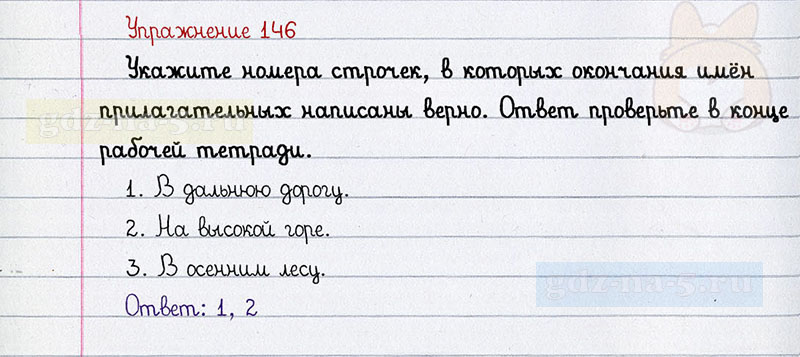 Упражнение 146
Укажите номера строчек, в которых окончания имён
прилагательных написаны верно. Ответ проверьте в конце
рабочей тетради.
1. В дальнюю дорогу.
2. На высокой горе.
3. В осенним лесу.
Ответ: 1, 2
gdz-na-5.ru
gdz-na-5.ru